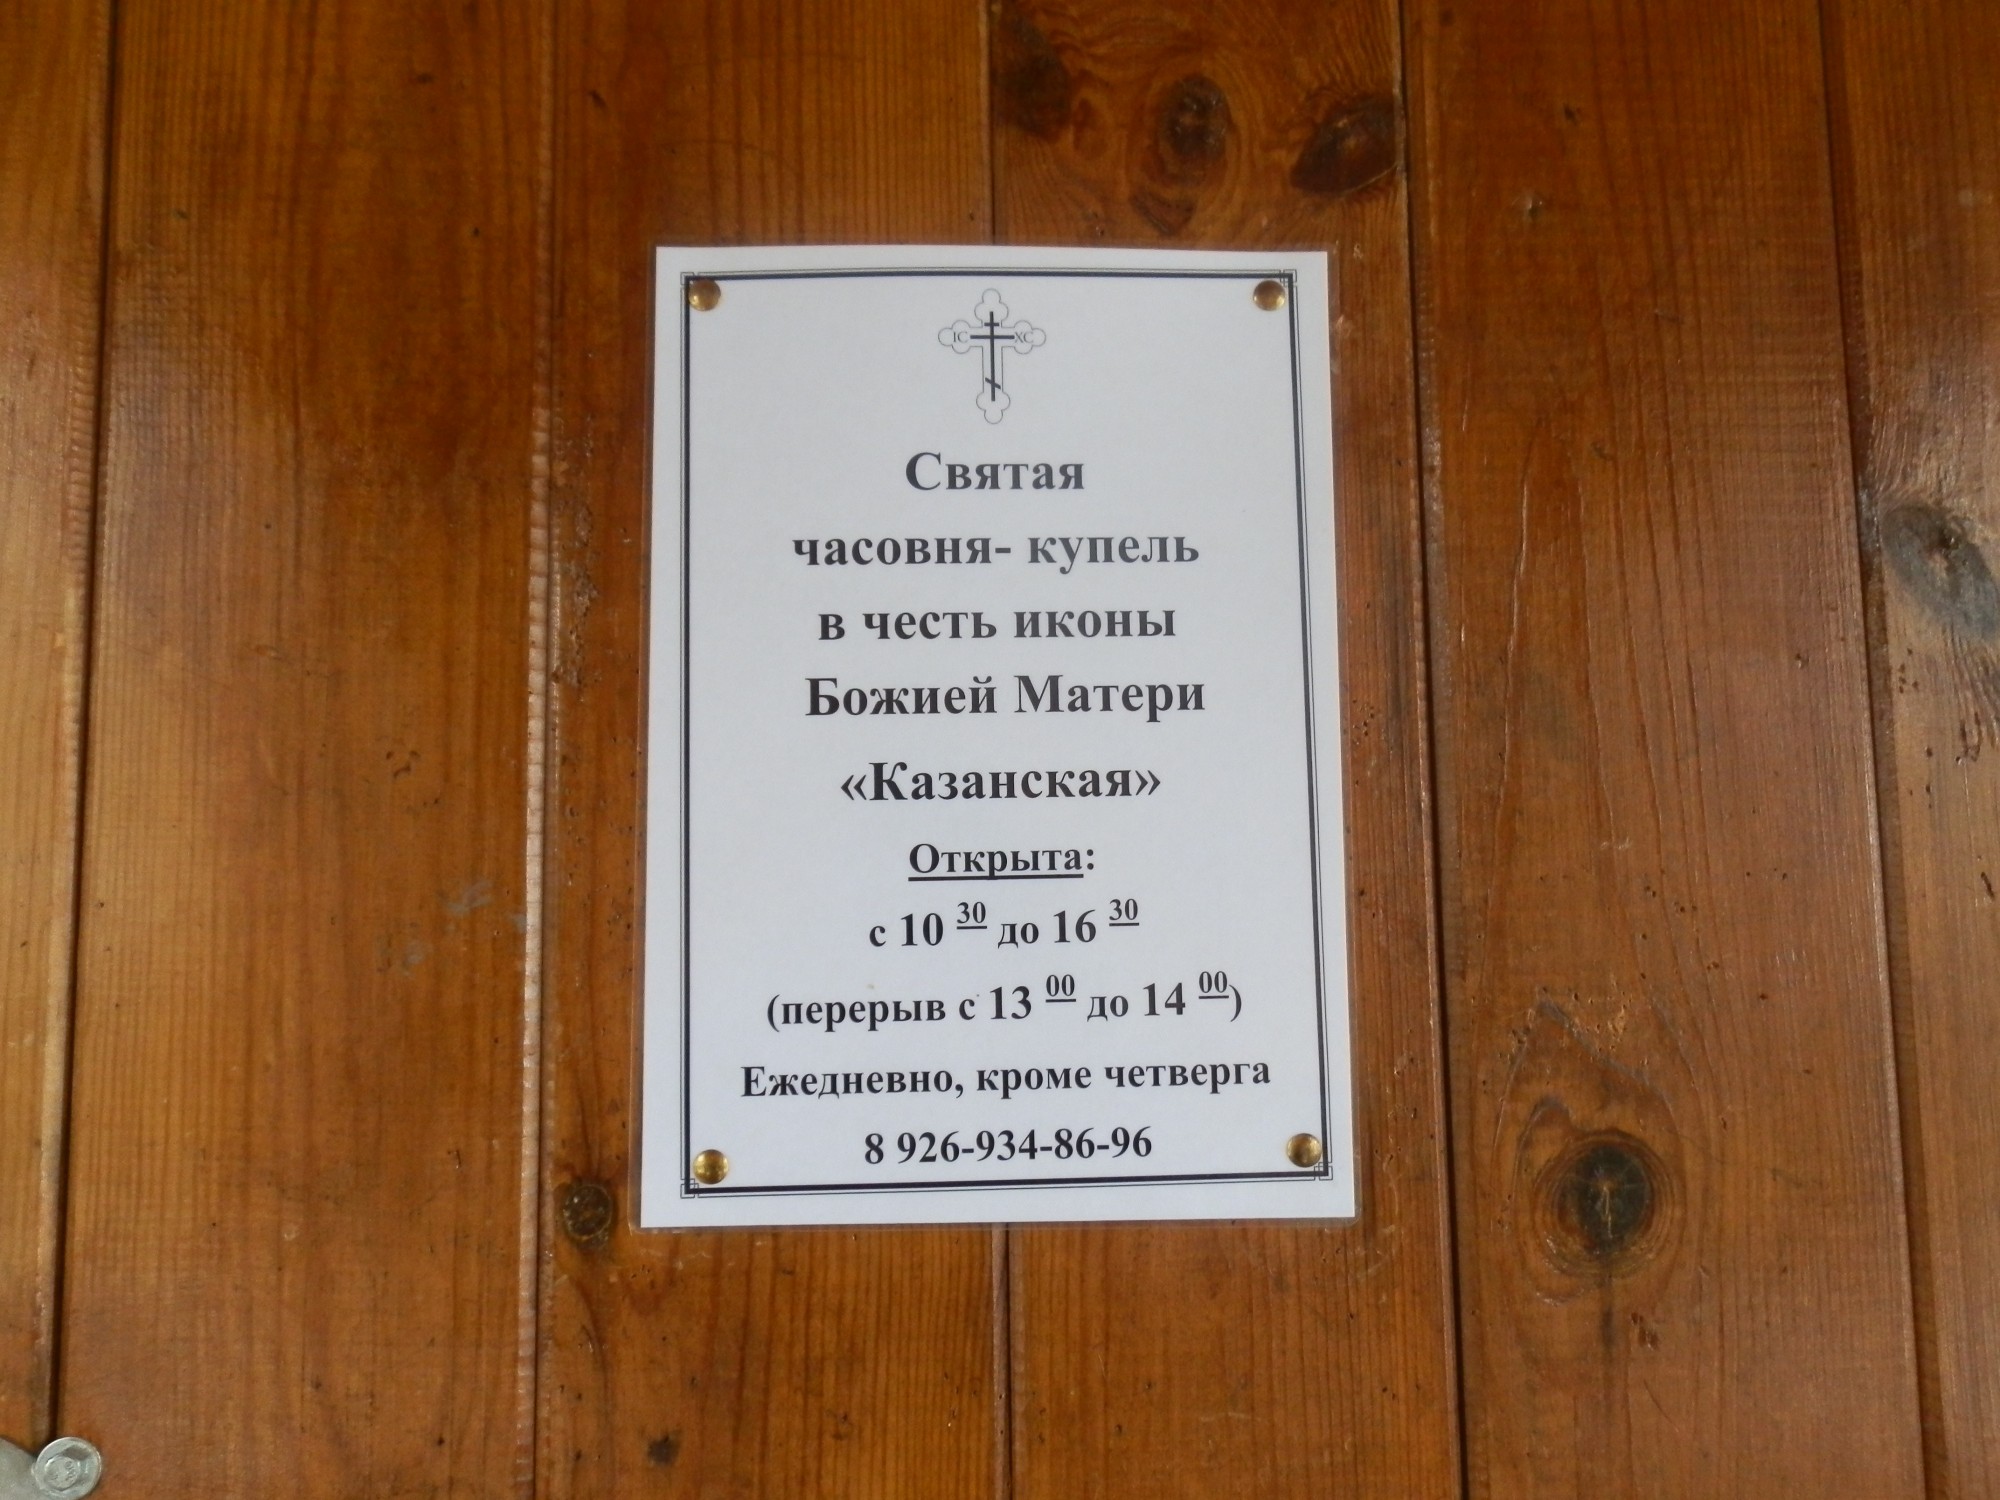 IC XC
Святая
часовня- купель
в честь иконы
Божией Матери
«Казанская»
Открыта:
с 10 30 до 16 30
(перерыв с 13 00 до 14 00)
Ежедневно, кроме четверга
8 926-934-86-96